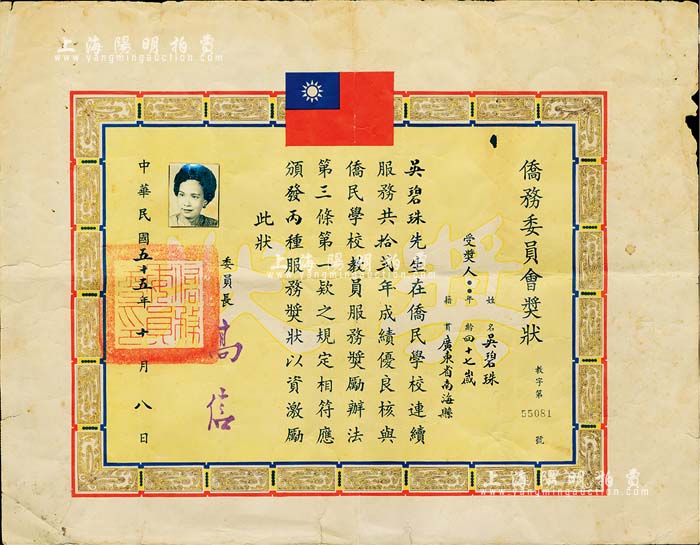 上海陽明拍賣
www.yangmingauction.com
僑務委員會獎狀
教字第
55081
號
受獎人
姓名吳碧珠
年齡四十七歲
籍貫廣東省南海縣
吳碧珠先生在僑民學校連續
服務共拾弍年成績優良核與
僑民學校教員服務獎勵辦法
第三條第一欵之規定相符應
頒發丙種服務獎狀以資激勵
此狀
委員長
高信
中華民國五十五年十月八日
獎狀
上海陽明拍賣
www.yangmingauction.com
上海陽明拍賣
www.yangmingauction.com